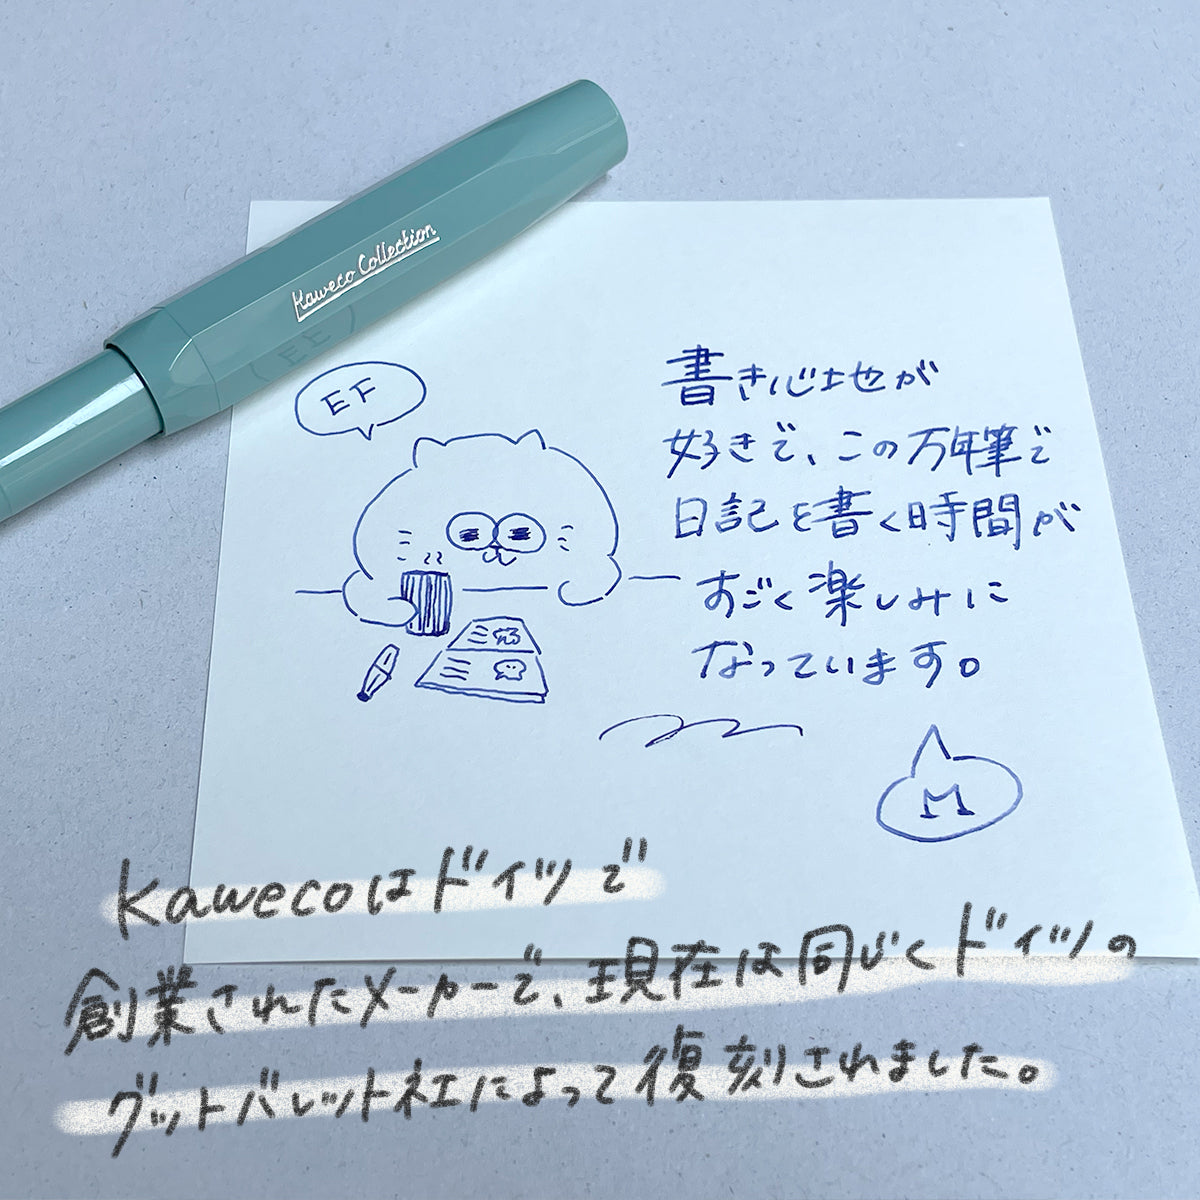 Kaweco Collection
EF
書き心地が
好きで、この万年筆で
日記を書く時間が
すごく楽しみに
なっています。
M
Kawecoはドイツで
創業されたメーカーで、現在は同じくドイツの
グットバレット社によって復刻されました。